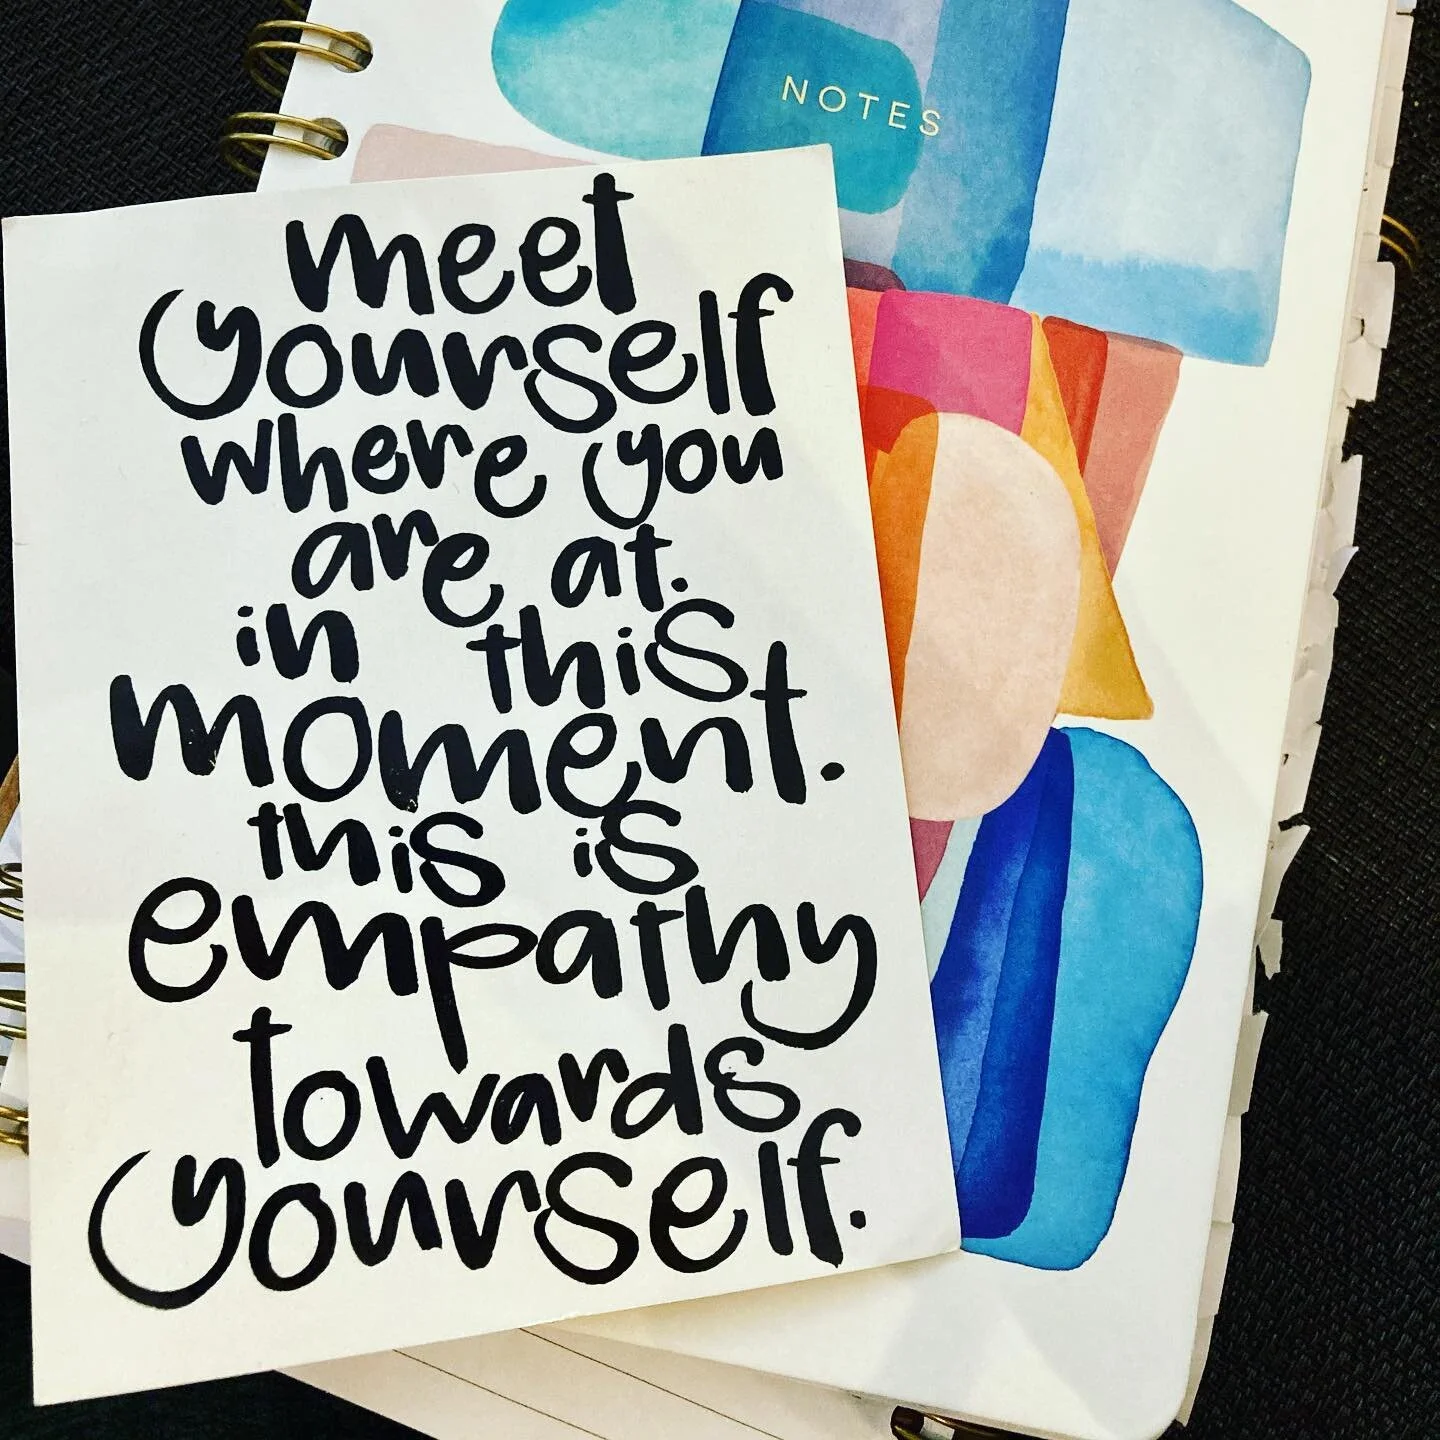 NOTES
meet
yourself
where you
are at.
in this
moment.
this is
empathy
towards
yourself.